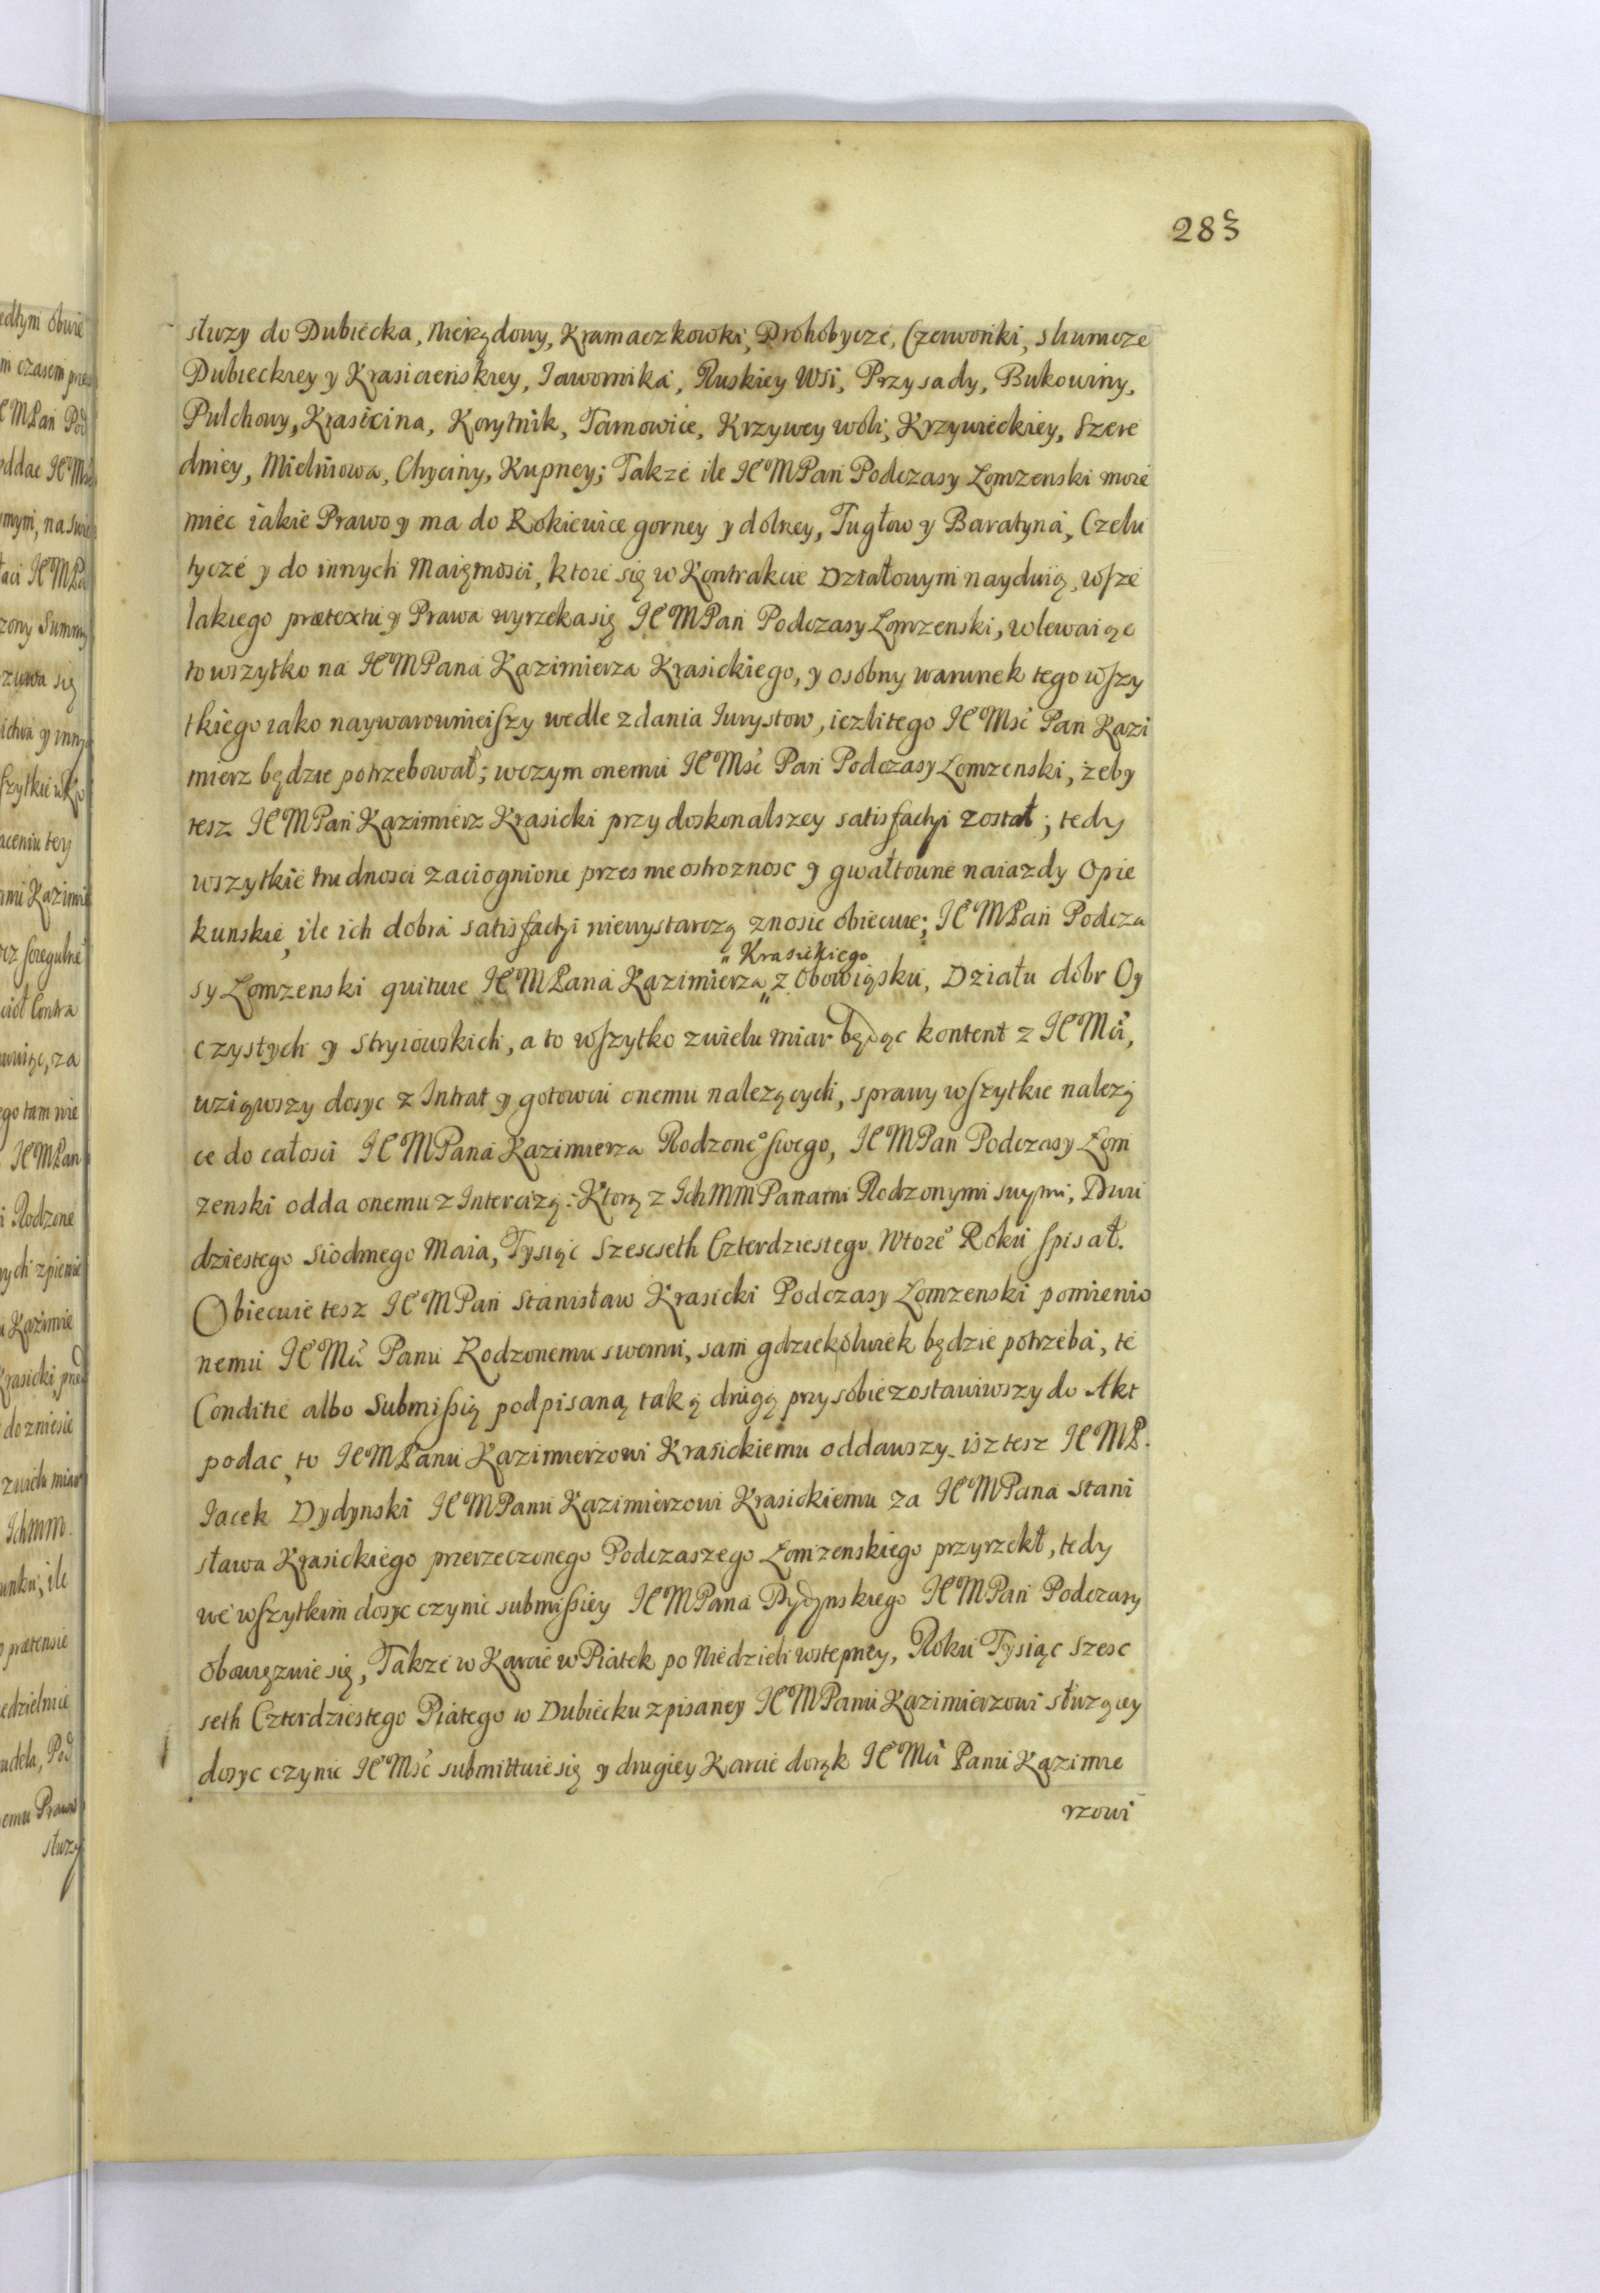 283
słuzy do Dubiecka, Nienądowy, Kramaczkowki, Drohobycze, Czerwonki, slumcze
Dubieckiey y Krasiczenskiey, Iawornika, Ruskiey Wsi, Przysady, Bukowiny,
Pulchowy, Krasicina, Korytnik, Tarnowice, Krzywey woli, Krzywieckiey, Szere
dniey, Mielniowa, Chyciny, Kupney; Takze ile IEMPan Podczasy Lomzenski moze
miec iakie Prawo y ma do Rokiewice gorney y dolney, Tugłow y Baratyna, Czelu
tycze y do innych Maiętnosci, ktore się w Kontrakcie Działowym nayduią, wsze
lakiego prætextu y Prawa wyrzeka się IEMPan Podczasy Lomzenski, wlewaiąc
to wszytko na IEMPana Kazimierza Krasickiego, y osobny warunek tego wszy
tkiego iako naywarownieiszy wedle zdania Iurystow, iezli tego IEMsc Pan Kazi
mierz będzie potrzebował; w czym onemu IEMsc Pan Podczasy Lomzenski, żeby
tesz IEMPan Kazimierz Krasicki przy doskonalszey satisfactyi został; tedy
wszytkie trudnosci zaciognione przes nieostroznosc y gwałtowne naiazdy Opie
kunskie, ile ich dobra satisfactyi niewystarczą znosic obiecuie; IEMPan Podcza
„ Krasickiego
sy Lomzenski quituie IEMPana Kazimierza „ z Obowiąsku, Działu dobr Oy
czystych y stryiowskich, a to wszytko z wielu miar będąc kontent z IEMci,
wziąwszy dosyc z Intrat y gotowci onemu nalezących, sprawy wszytkie nalezą
ce do całosci IEMPana Kazimierza Rodzone° swego, IEMPan Podczasy Lom
zenski odda onemu z Intercizą: Ktorą z IchMMPanami Rodzonymi swymi, Dwu
dziestego siodmego Maia, Tysiąc Szescseth Czterdziestego Wtore° Roku spisał.
Obiecuie tesz IEMPan Stanisław Krasicki Podczasy Lomzenski pomienio
nemu IEMci Panu Rodzonemu swemu, sam gdziekolwiek będzie potrzeba, te
Conditie albo Submissią podpisaną taką drugą przy sobie zostawiwszy do Akt
podac, to IEMPanu Kazimierzowi Krasickiemu oddawszy. isz tesz IEMP.
Iacek Dydynski IEMPanu Kazimierzowi Krasickiemu za IEMPana Stani
sława Krasickiego przerzeczonego Podczaszego Lomzenskiego przyrzekł, tedy
we wszytkim dosyc czynic submissiey IEMPana Dydynskiego IEMPan Podczasy
obowięzuie się, Takze w Karcie w Piątek po Niedzieli wstepney, Roku Tysiąc Szesc
seth Czterdziestego Piątego w Dubiecku zpisaney IEMPanu Kazimierzowi słuzącey
dosyc czynic IEMsc submittuie się y drugiey Karcie do rąk IEMci Panu Kazimie
rzowi